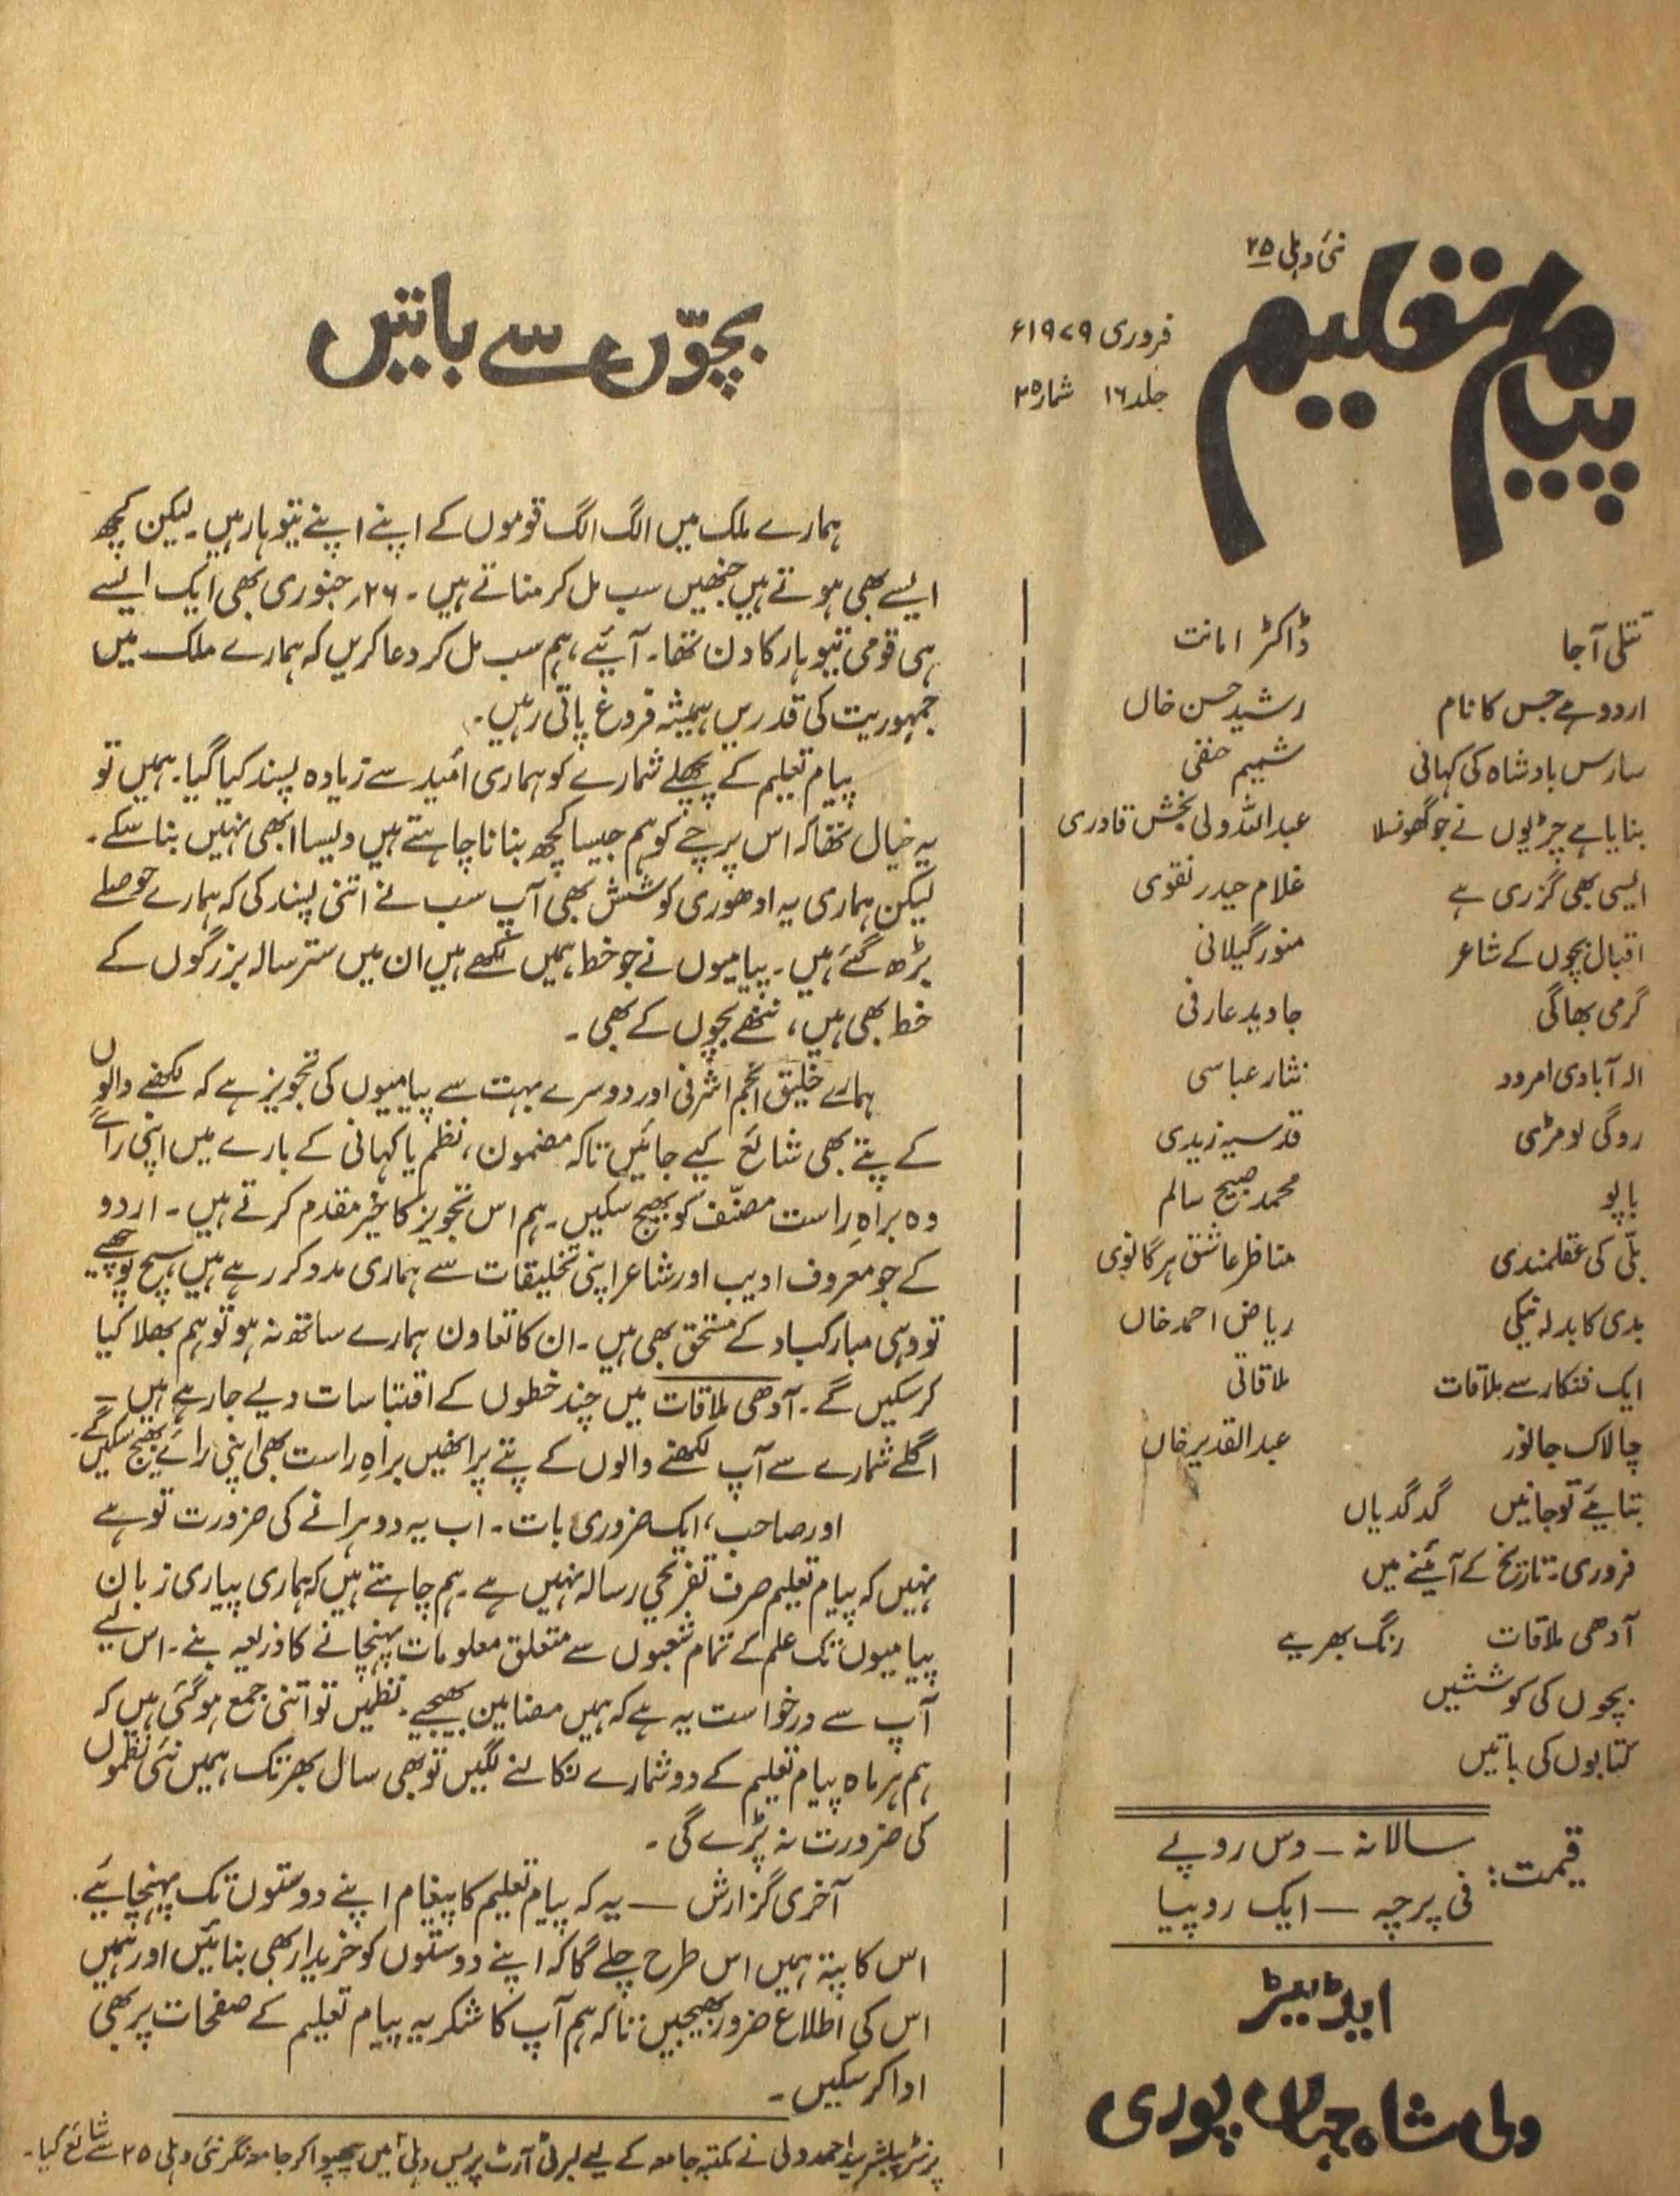 پیام تعلیم
نئی دہلی ۲۵
فروری ۱۹۷۹ء
جلد ۱۶ شمارہ ۲
تتلی آ جا ڈاکٹر امانت
اردو ہے جس کا نام رشید حسن خاں
سارس بادشاہ کی کہانی شمیم حنفی
بنایا ہے چڑیوں نے جو گھونسلا عبداللہ ولی بخش قادری
ایسی بھی گزری ہے غلام حیدر نقوی
اقبال بچوں کے شاعر منور گیلانی
گرمی بھاگی جاوید عارفی
الہ آبادی امرود نثار عباسی
روگی لومڑی قدسیہ زیدی
باپو محمد صبیح سالم
بلّی کی عقلمندی مناظر عاشق ہرگانوی
بدی کا بدلہ نیکی ریاض احمد خاں
ایک فنکار سے ملاقات ملاقاتی
چالاک جانور عبدالقدیر خاں
بتایئے تو جانیں گدگدیاں
فروری: تاریخ کے آئینے میں
آدھی ملاقات رنگ بھریے
بچوں کی کوششیں
کتابوں کی باتیں
قیمت:
سالانہ — دس روپے
فی پرچہ — ایک روپیا
ایڈیٹر
ولی شاہ جہاں پوری
بچّوں سے باتیں
ہمارے ملک میں الگ الگ قوموں کے اپنے اپنے تیوہار ہیں۔ لیکن کچھ
ایسے بھی ہوتے ہیں جنھیں سب مل کر مناتے ہیں۔ ۲۶؍ جنوری بھی ایک ایسے
ہی قومی تیوہار کا دن تھا۔ آیئے، ہم سب مل کر دعا کریں کہ ہمارے ملک میں
جمہوریت کی قدریں ہمیشہ فروغ پاتی رہیں۔
پیام تعلیم کے پچھلے شمارے کو ہماری اُمید سے زیادہ پسند کیا گیا۔ ہمیں تو
یہ خیال تھا کہ اس پرچے کو ہم جیسا کچھ بنانا چاہتے ہیں ویسا ابھی نہیں بنا سکے۔
لیکن ہماری یہ ادھوری کوشش بھی آپ سب نے اتنی پسند کی کہ ہمارے حوصلے
بڑھ گئے ہیں۔ پیامیوں نے جو خط ہمیں لکھے ہیں ان میں ستر سالہ بزرگوں کے
خط بھی ہیں، ننھے بچوں کے بھی۔
ہمارے خلیق انجم اشرفی اور دوسرے بہت سے پیامیوں کی تجویز ہے کہ لکھنے والوں
کے پتے بھی شائع کیے جائیں تاکہ مضمون، نظم یا کہانی کے بارے میں اپنی رائے
وہ براہِ راست مصنّف کو بھیج سکیں۔ ہم اس تجویز کا خیر مقدم کرتے ہیں۔ اردو
کے جو معروف ادیب اور شاعر اپنی تخلیقات سے ہماری مدد کر رہے ہیں، سچ پوچھیے
تو وہی مبارکباد کے مستحق بھی ہیں۔ ان کا تعاون ہمارے ساتھ نہ ہو تو ہم بھلا کیا
کر سکیں گے۔ آدھی ملاقات میں چند خطوں کے اقتباسات دیے جا رہے ہیں —
اگلے شمارے سے آپ لکھنے والوں کے پتے پر انھیں براہِ راست بھی اپنی رائے بھیج سکیں گے۔
اور صاحب، ایک ضروری بات۔ اب یہ دوہرانے کی ضرورت تو ہے
نہیں کہ پیام تعلیم صرف تفریحی رسالہ نہیں ہے۔ ہم چاہتے ہیں کہ ہماری پیاری زبان
پیامیوں تک علم کے تمام شعبوں سے متعلق معلومات پہنچانے کا ذریعہ بنے۔ اس لیے
آپ سے درخواست یہ ہے کہ ہمیں مضامین بھیجیے۔ نظمیں تو اتنی جمع ہو گئی ہیں کہ
ہم ہر ماہ پیام تعلیم کے دو شمارے نکالنے لگیں تو بھی سال بھر تک ہمیں نئی نظموں
کی ضرورت نہ پڑے گی۔
آخری گزارش — یہ کہ پیام تعلیم کا پیغام اپنے دوستوں تک پہنچایئے۔
اس کا پتہ ہمیں اس طرح چلے گا کہ اپنے دوستوں کو خریدار بھی بنائیں اور ہمیں
اس کی اطلاع ضرور بھیجیں تاکہ ہم آپ کا شکریہ پیام تعلیم کے صفحات پر بھی
ادا کر سکیں۔
پرنٹر پبلشر سید احمد ولی نے مکتبہ جامعہ کے لیے لبرٹی آرٹ پریس دہلی میں چھپوا کر جامعہ نگر نئی دہلی ۲۵ سے شائع کیا۔